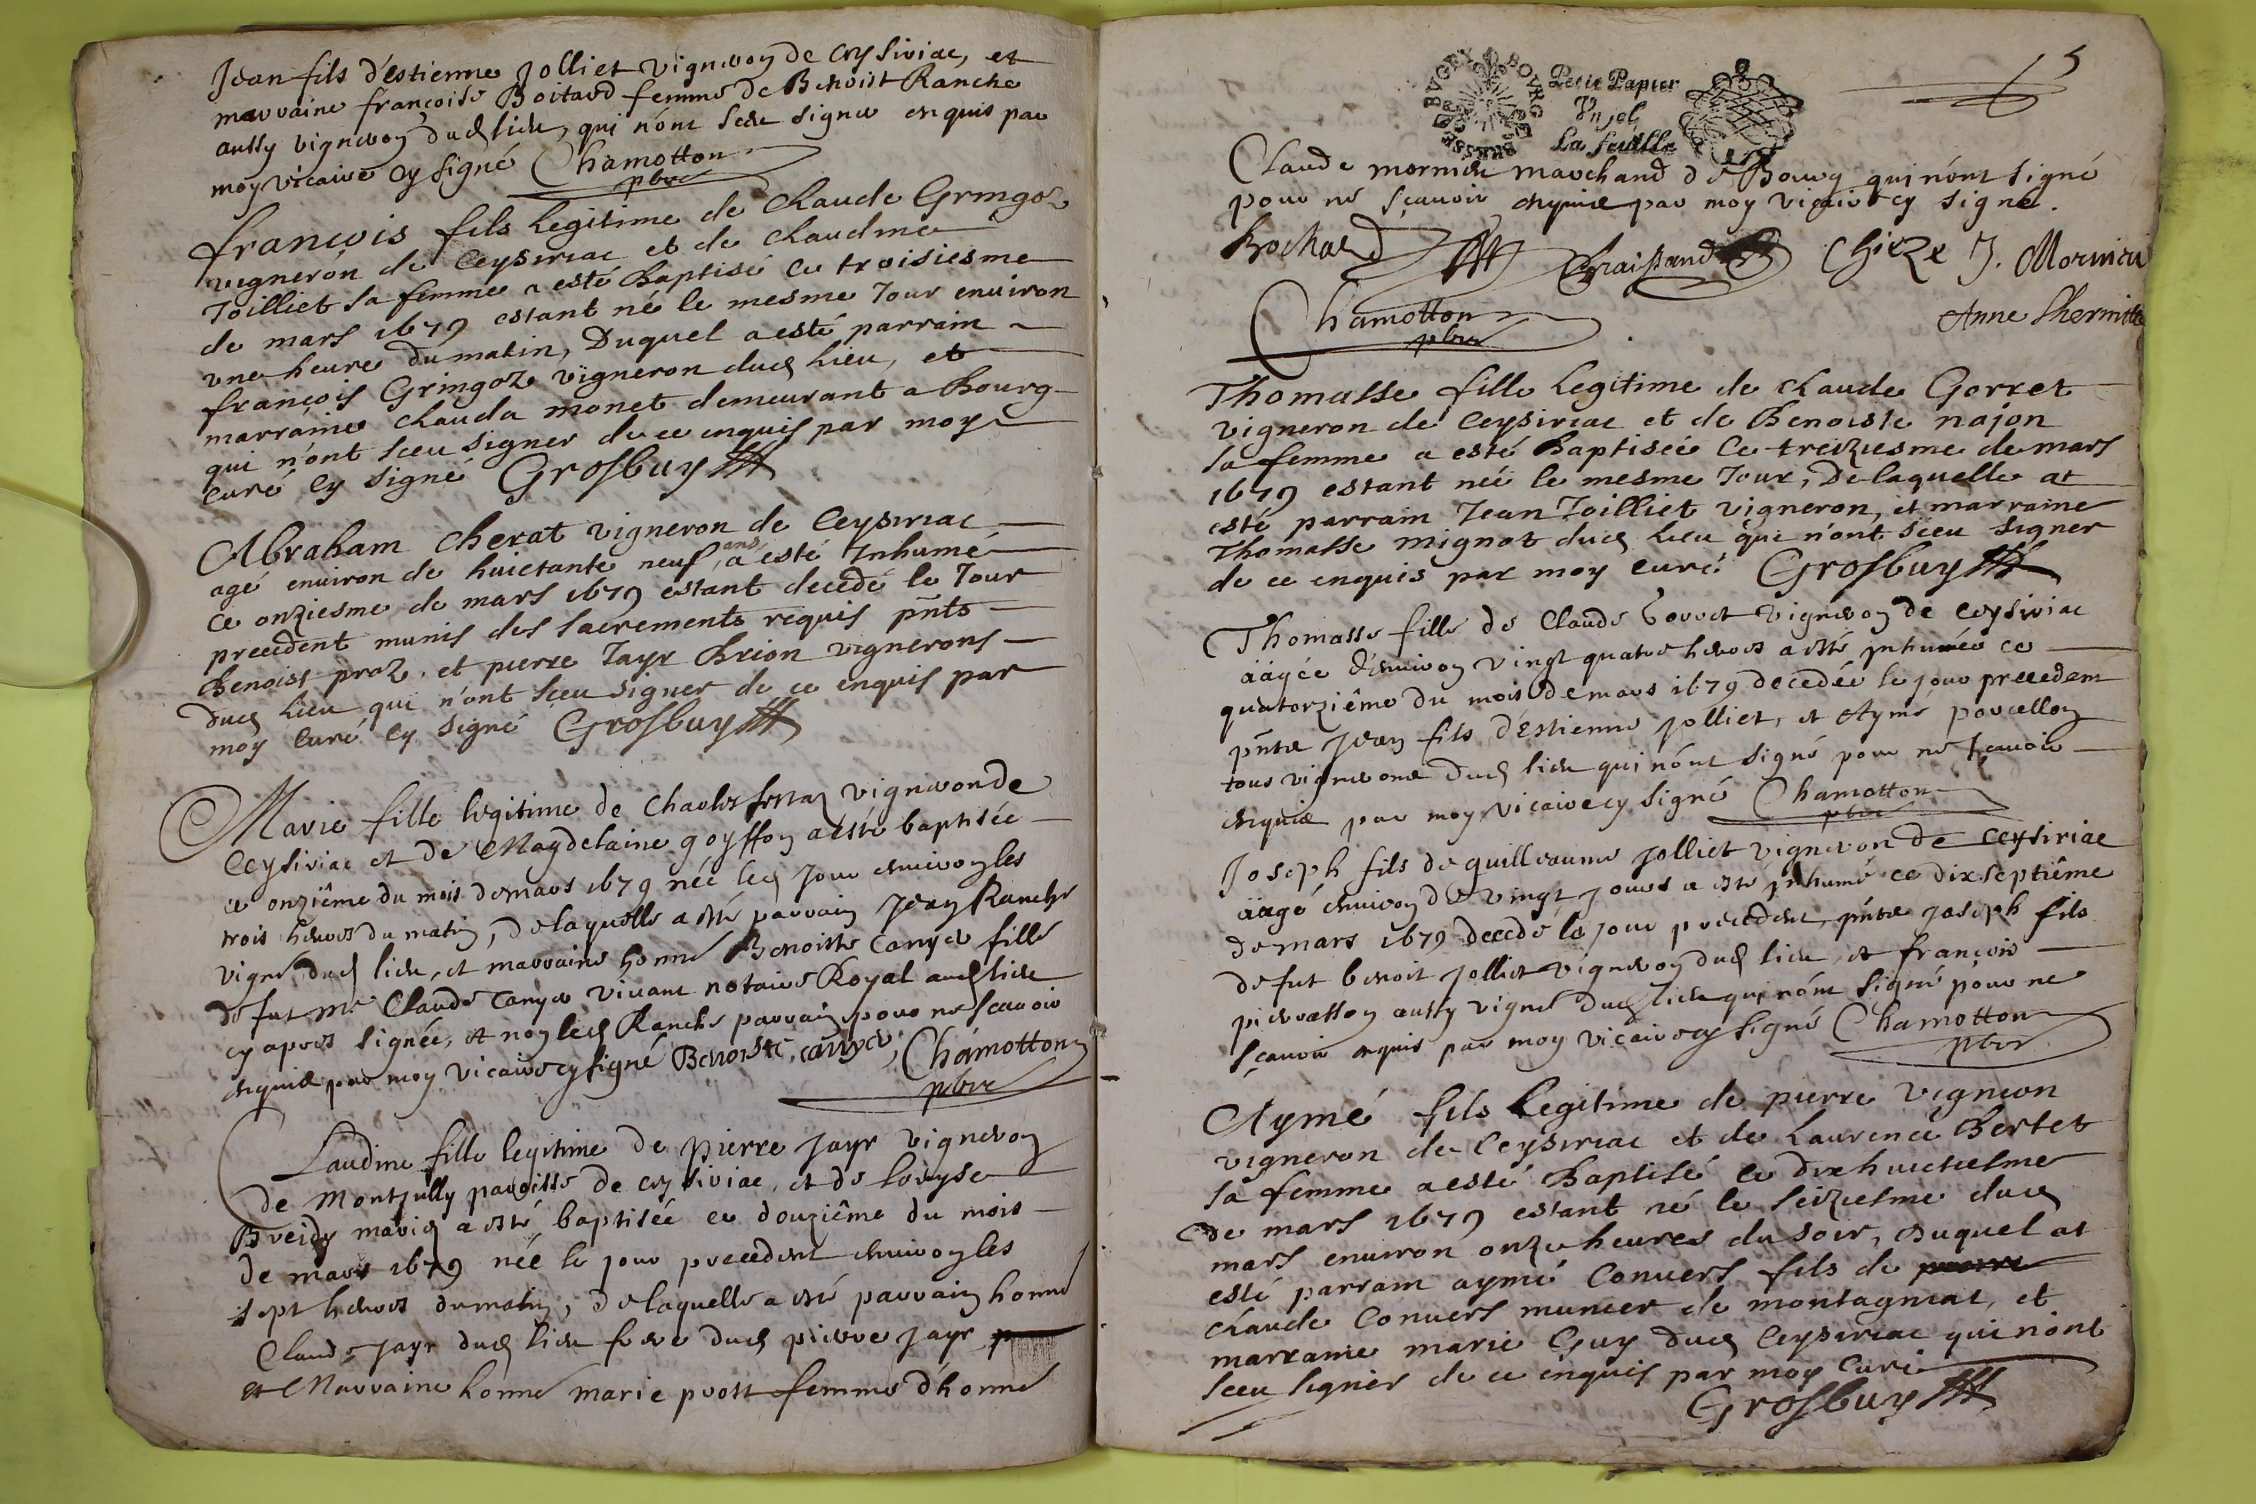 Jean fils d'estienne Jolliet vigneron de Ceysiriac, et
marraine françoise Boitard femme de Benoist Ranche
aussy vigneron dud lieu, qui n'ont sceu signer enquis par
moy vicaire cy signé Chamotton
pbre
françois fils legitime de claude Gringoz
vigneron de Ceysiriac et de claudine
Joilliet sa femme a esté Baptisé ce troisiesme
de mars 1679 estant né le mesme Jour environ
une heure du matin, Duquel a esté parrain
françois Gringoz vigneron dud lieu, et
marraine clauda monet demeurant a Bourg
qui n'ont sceu signer de ce enquis par moy
curé cy signé Grosbuy
Abraham cherat vigneron de Ceysiriac
agé environ de huictante neuf ans, a esté Inhumé
ce onziesme de mars 1679 estant decedé le Jour
precedent munis des sacrements requis pnts
Benoist proz, et pierre Jayr Brion vignerons
dud lieu qui n'ont sceu signer de ce enquis par
moy curé cy signé Grosbuy
Marie fille legitime de Charles vigneron de
Ceysiriac et de Magdelaine goyffon a esté baptisée
ce onzième du mois de mars 1679 née led jour environ les
trois heures du matin, de laquelle a esté parrain Jean Ranche
vigne dud lieu, et marraine honne Benoiste Canyer fille
de fut me Claude Canyer vivant notaire Royal aud lieu
cy apres signée, et non led Ranche parrain pour ne scavoir
enquis par moy vicaire cy signé Benoiste canyer, Chamotton
pbre
Claudine fille legitime de Pierre Jayr vigneron
de Montjully paroisse de ceysiriac, et de Louyse
Breidy mariez a esté baptisée ce douzième du mois
de mars 1679 née le jour precedent environ les
sept heures du matin, de laquelle a esté parrain honne
Claude Jayr dud lieu frere dud pierre Jayr
et Marraine honne marie prost femme d'honne
5
BRESSE BVGEY BOVRG
Petit Papier
Vn sol
La feuille
Claude mornieu marchand de Bourg qui n'ont signé
pour ne sçavoir enquis par moy vicaire cy signé.
Bochard Chaissand Chieze J. Mornieu
Chamotton Anne Shermitte
pbre
Thomasse fille legitime de claude Gerret
vigneron de Ceysiriac et de Benoiste najon
sa femme a esté Baptisée ce treiziesme de mars
1679 estant née le mesme Jour, De laquelle at
esté parrain Jean Joilliet vigneron, et marraine
Thomasse mignot dud lieu qui n'ont sceu signer
de ce enquis par moy curé Grosbuy
Thomasse fille de Claude Gerret vigneron de ceysiriac
aagée d'environ vingt quatre heures a esté inhumée ce
quatorzième du mois de mars 1679 decedée le jour precedent
pnts Jean fils d'Estienne Jolliet, et Aymé porcellon
tous vignerons dud lieu qui n'ont signé pour ne sçavoir
enquis par moy vicaire cy signé Chamotton
pbre
Joseph fils de guilleaume Jolliet vigneron de ceysiriac
aagé environ de vingt jours a esté inhumé ce dix septième
de mars 1679 decedé le jour precedent, pnts Joseph fils
de fut benoit Jolliet vigneron dud lieu, et françois
pierasson aussy vigne dud lieu qui n'ont signé pour ne
sçavoir enquis par moy vicaire cy signé Chamotton
pbre
Aymé fils legitime de pierre vigneon
vigneron de Ceysiriac et de Laurence Bertet
sa femme a esté Baptisé ce dixhuictiesme
de mars 1679 estant né le seiziesme dud
mars environ onze heures du soir, Duquel at
esté parrain aymé Convers fils de pierre
claude Convers munier de montagniat, et
marraine marie Guy dud Ceysiriac qui n'ont
sceu signer de ce enquis par moy curé
Grosbuy